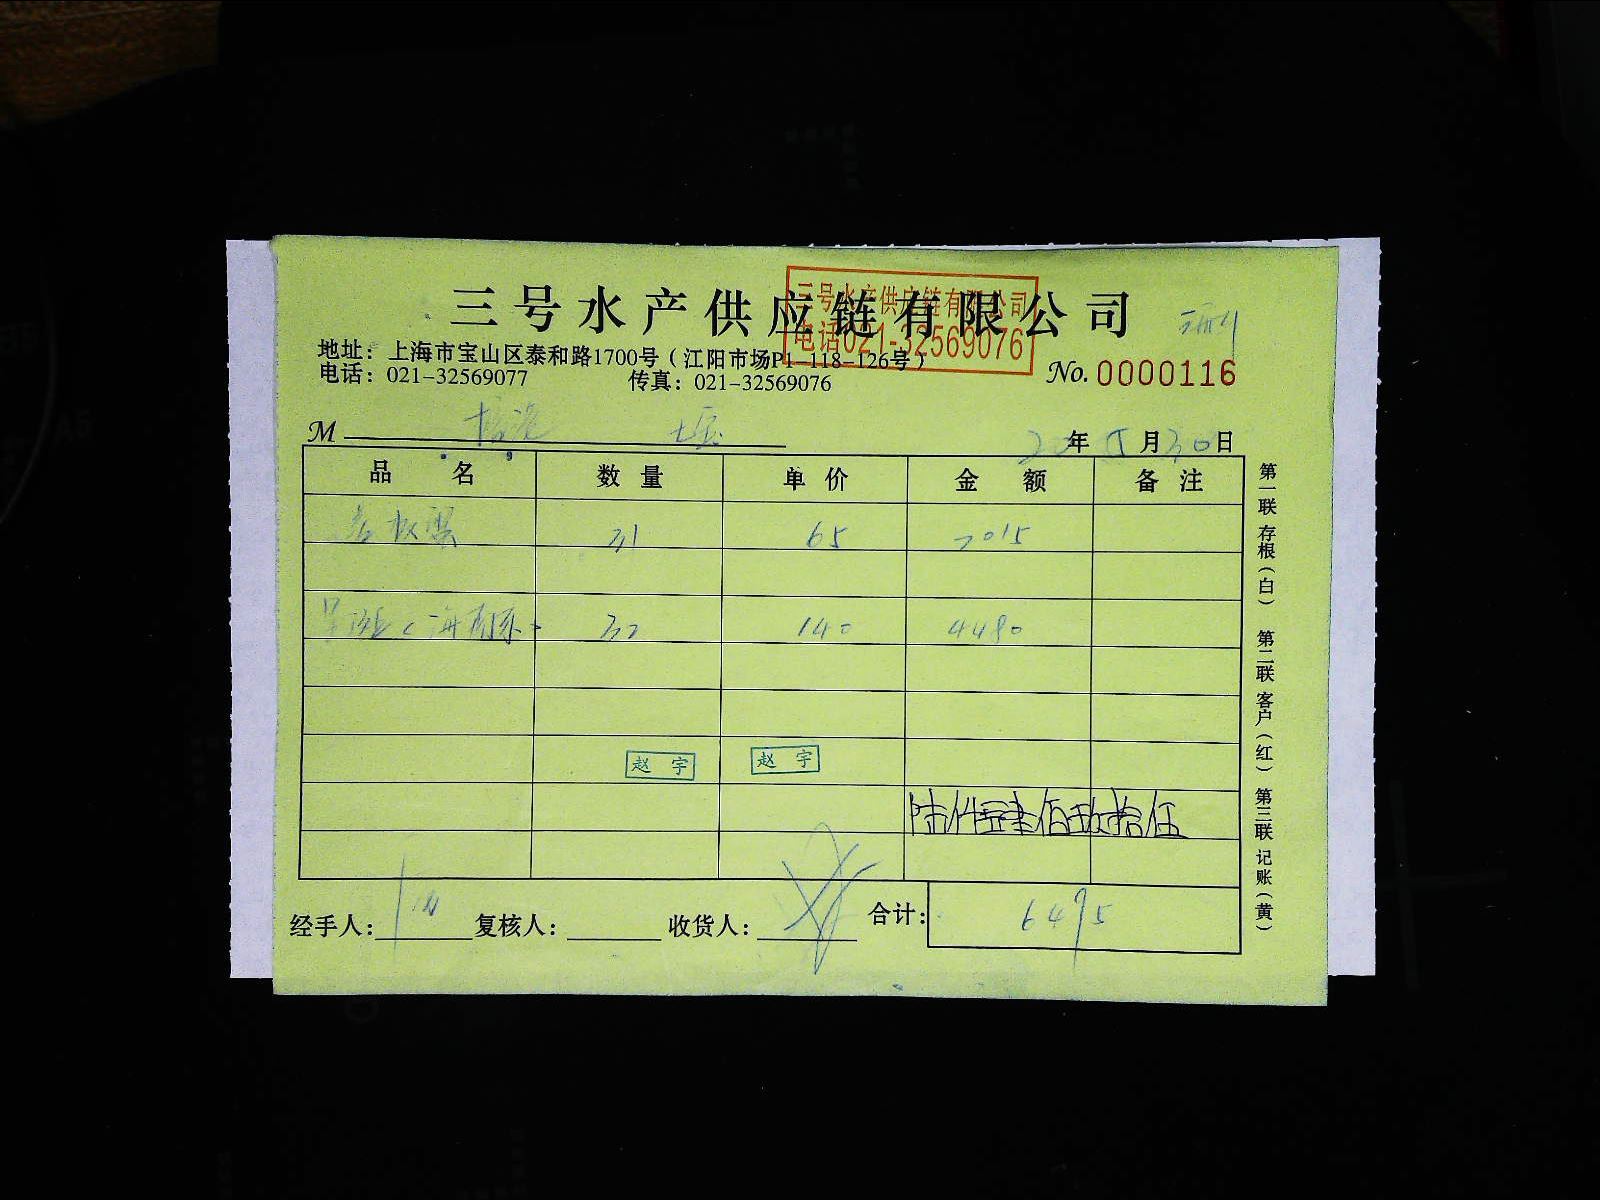 三号水产供应链有限公司
三号水产供应链有限公司
电话021-32569076
地址：上海市宝山区泰和路1700号（江阳市场P1-118-126号）
电话：021-32569077 传真：021-32569076
No.0000116
M
20年 月30日
品名 数量 单价 金额 备注
31 65 2015
32 140 4480
赵宇 赵宇
陆仟肆佰玖拾伍
经手人： 复核人： 收货人： 合计： 6495
第一联 存根（白） 第二联 客户（红） 第三联 记账（黄）